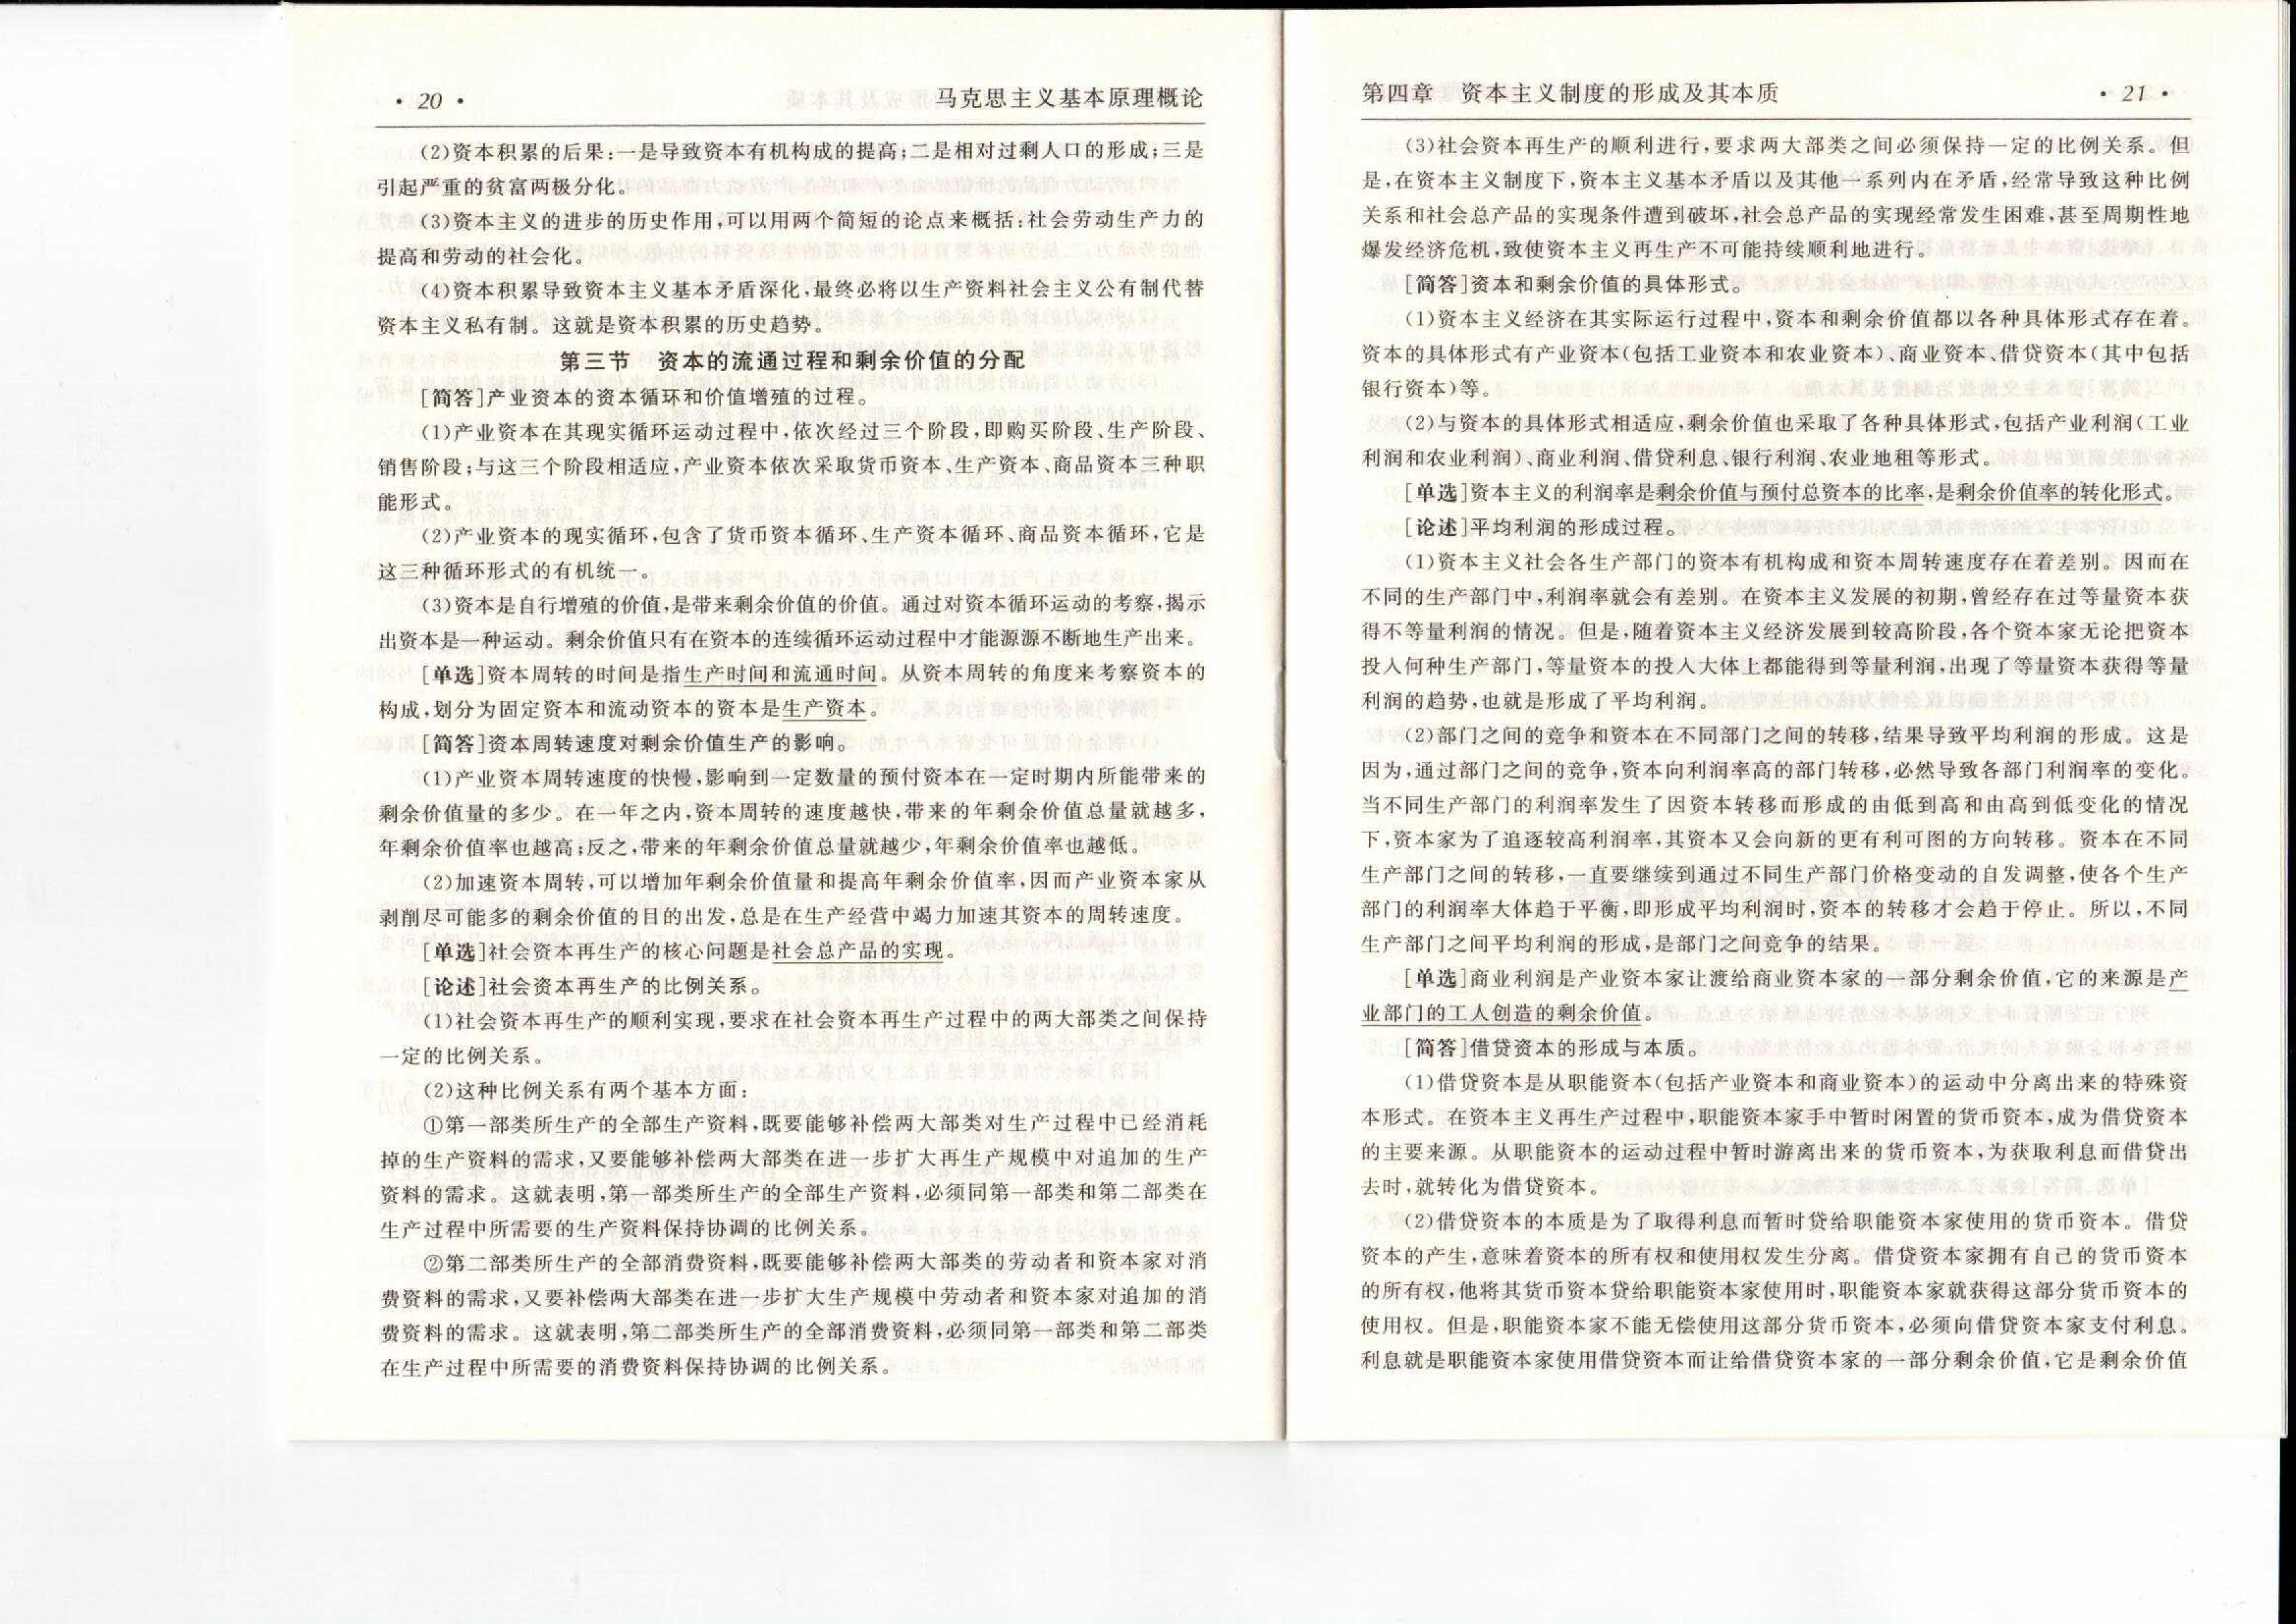 · 20 · 马克思主义基本原理概论
(2)资本积累的后果:一是导致资本有机构成的提高;二是相对过剩人口的形成;三是
引起严重的贫富两极分化。
(3)资本主义的进步的历史作用,可以用两个简短的论点来概括:社会劳动生产力的
提高和劳动的社会化。
(4)资本积累导致资本主义基本矛盾深化,最终必将以生产资料社会主义公有制代替
资本主义私有制。这就是资本积累的历史趋势。
第三节 资本的流通过程和剩余价值的分配
[简答]产业资本的资本循环和价值增殖的过程。
(1)产业资本在其现实循环运动过程中,依次经过三个阶段,即购买阶段、生产阶段、
销售阶段;与这三个阶段相适应,产业资本依次采取货币资本、生产资本、商品资本三种职
能形式。
(2)产业资本的现实循环,包含了货币资本循环、生产资本循环、商品资本循环,它是
这三种循环形式的有机统一。
(3)资本是自行增殖的价值,是带来剩余价值的价值。通过对资本循环运动的考察,揭示
出资本是一种运动。剩余价值只有在资本的连续循环运动过程中才能源源不断地生产出来。
[单选]资本周转的时间是指生产时间和流通时间。从资本周转的角度来考察资本的
构成,划分为固定资本和流动资本的资本是生产资本。
[简答]资本周转速度对剩余价值生产的影响。
(1)产业资本周转速度的快慢,影响到一定数量的预付资本在一定时期内所能带来的
剩余价值量的多少。在一年之内,资本周转的速度越快,带来的年剩余价值总量就越多,
年剩余价值率也越高;反之,带来的年剩余价值总量就越少,年剩余价值率也越低。
(2)加速资本周转,可以增加年剩余价值量和提高年剩余价值率,因而产业资本家从
剥削尽可能多的剩余价值的目的出发,总是在生产经营中竭力加速其资本的周转速度。
[单选]社会资本再生产的核心问题是社会总产品的实现。
[论述]社会资本再生产的比例关系。
(1)社会资本再生产的顺利实现,要求在社会资本再生产过程中的两大部类之间保持
一定的比例关系。
(2)这种比例关系有两个基本方面:
①第一部类所生产的全部生产资料,既要能够补偿两大部类对生产过程中已经消耗
掉的生产资料的需求,又要能够补偿两大部类在进一步扩大再生产规模中对追加的生产
资料的需求。这就表明,第一部类所生产的全部生产资料,必须同第一部类和第二部类在
生产过程中所需要的生产资料保持协调的比例关系。
②第二部类所生产的全部消费资料,既要能够补偿两大部类的劳动者和资本家对消
费资料的需求,又要补偿两大部类在进一步扩大生产规模中劳动者和资本家对追加的消
费资料的需求。这就表明,第二部类所生产的全部消费资料,必须同第一部类和第二部类
在生产过程中所需要的消费资料保持协调的比例关系。
第四章 资本主义制度的形成及其本质 · 21 ·
(3)社会资本再生产的顺利进行,要求两大部类之间必须保持一定的比例关系。但
是,在资本主义制度下,资本主义基本矛盾以及其他一系列内在矛盾,经常导致这种比例
关系和社会总产品的实现条件遭到破坏,社会总产品的实现经常发生困难,甚至周期性地
爆发经济危机,致使资本主义再生产不可能持续顺利地进行。
[简答]资本和剩余价值的具体形式。
(1)资本主义经济在其实际运行过程中,资本和剩余价值都以各种具体形式存在着。
资本的具体形式有产业资本(包括工业资本和农业资本)、商业资本、借贷资本(其中包括
银行资本)等。
(2)与资本的具体形式相适应,剩余价值也采取了各种具体形式,包括产业利润(工业
利润和农业利润)、商业利润、借贷利息、银行利润、农业地租等形式。
[单选]资本主义的利润率是剩余价值与预付总资本的比率,是剩余价值率的转化形式。
[论述]平均利润的形成过程。
(1)资本主义社会各生产部门的资本有机构成和资本周转速度存在着差别。因而在
不同的生产部门中,利润率就会有差别。在资本主义发展的初期,曾经存在过等量资本获
得不等量利润的情况。但是,随着资本主义经济发展到较高阶段,各个资本家无论把资本
投入何种生产部门,等量资本的投入大体上都能得到等量利润,出现了等量资本获得等量
利润的趋势,也就是形成了平均利润。
(2)部门之间的竞争和资本在不同部门之间的转移,结果导致平均利润的形成。这是
因为,通过部门之间的竞争,资本向利润率高的部门转移,必然导致各部门利润率的变化。
当不同生产部门的利润率发生了因资本转移而形成的由低到高和由高到低变化的情况
下,资本家为了追逐较高利润率,其资本又会向新的更有利可图的方向转移。资本在不同
生产部门之间的转移,一直要继续到通过不同生产部门价格变动的自发调整,使各个生产
部门的利润率大体趋于平衡,即形成平均利润时,资本的转移才会趋于停止。所以,不同
生产部门之间平均利润的形成,是部门之间竞争的结果。
[单选]商业利润是产业资本家让渡给商业资本家的一部分剩余价值,它的来源是产
业部门的工人创造的剩余价值。
[简答]借贷资本的形成与本质。
(1)借贷资本是从职能资本(包括产业资本和商业资本)的运动中分离出来的特殊资
本形式。在资本主义再生产过程中,职能资本家手中暂时闲置的货币资本,成为借贷资本
的主要来源。从职能资本的运动过程中暂时游离出来的货币资本,为获取利息而借贷出
去时,就转化为借贷资本。
(2)借贷资本的本质是为了取得利息而暂时贷给职能资本家使用的货币资本。借贷
资本的产生,意味着资本的所有权和使用权发生分离。借贷资本家拥有自己的货币资本
的所有权,他将其货币资本贷给职能资本家使用时,职能资本家就获得这部分货币资本的
使用权。但是,职能资本家不能无偿使用这部分货币资本,必须向借贷资本家支付利息。
利息就是职能资本家使用借贷资本而让给借贷资本家的一部分剩余价值,它是剩余价值